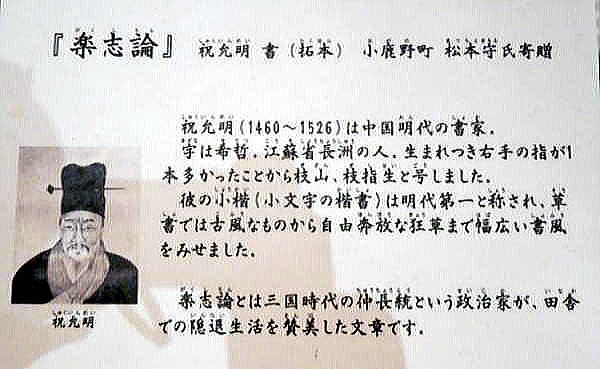 『楽志論』 祝允明 書 (拓本) 小鹿野町 松本守氏寄贈
祝允明(1460〜1526)は中国明代の書家。
字は希哲。江蘇省長洲の人。生まれつき右手の指が1
本多かったことから枝山、枝指生と号しました。
彼の小楷(小文字の楷書)は明代第一と称され、草
書では古風なものから自由奔放な狂草まで幅広い書風
をみせました。
楽志論とは三国時代の仲長統という政治家が、田舎
での隠退生活を賛美した文章です。
祝允明